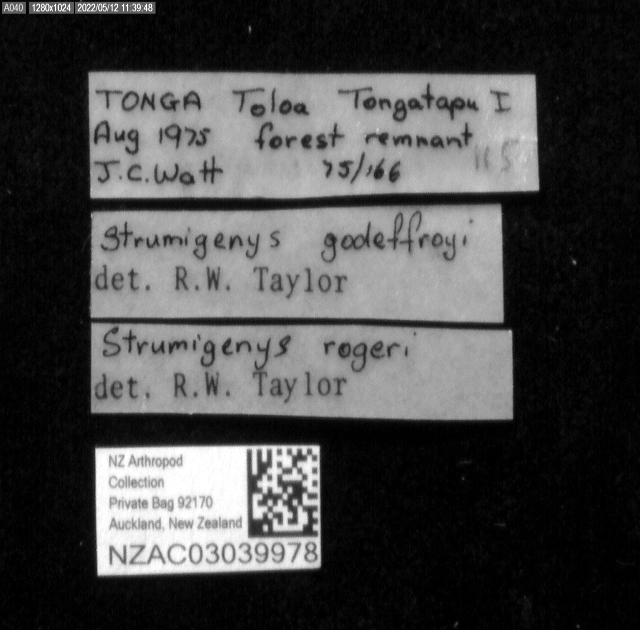 A040 1280x1024 2022/05/12 11:39:48
TONGA Toloa Tongatapu I
Aug 1975 forest remnant
J.C. Watt 75/166
Strumigenys godeffroyi
det. R.W. Taylor
Strumigenys rogeri
det. R.W. Taylor
NZ Arthropod
Collection
Private Bag 92170
Auckland, New Zealand
NZAC03039978